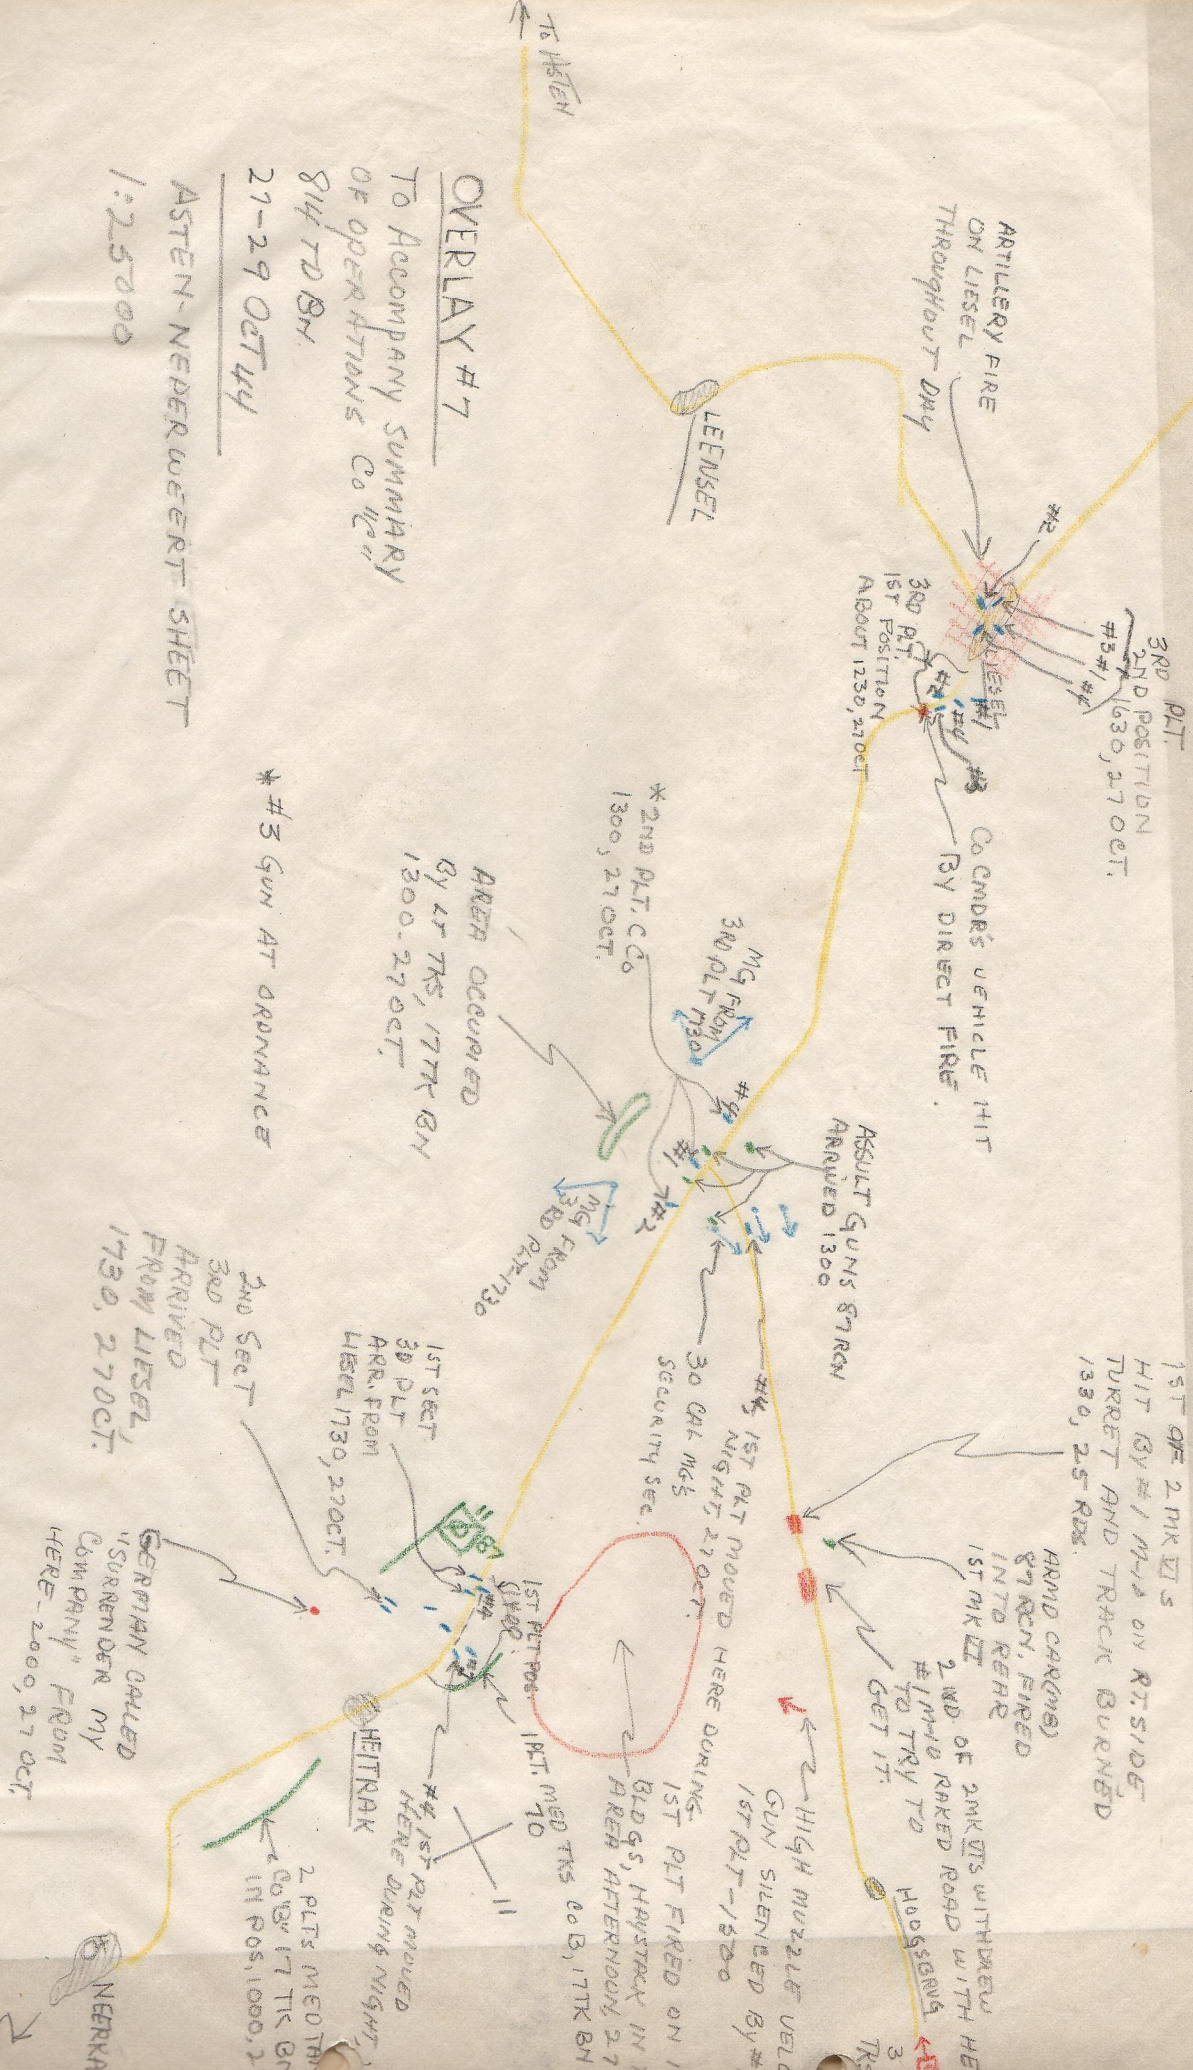 OVERLAY #7
TO ACCOMPANY SUMMARY
OF OPERATIONS CO "C"
814 TD BN.
27-29 OCT 44
ASTEN-NEDERWEERT SHEET
1:25000
To ASTEN
LEENSEL
ARTILLERY FIRE
ON LIESEL
THROUGHOUT DAY
#2
3RD PLT.
2ND POSITION
1630, 27 OCT.
#3 #1
#4
LIESEL
3RD PLT.
1ST POSITION
ABOUT 1230, 27 OCT
#2
#1
#4
#3
CO CMDR'S VEHICLE HIT
BY DIRECT FIRE.
*2ND PLT. C CO
1300, 27 OCT.
MG FROM
3RD PLT 1730
AREA OCCUPIED
BY LT TKS, 17 TK BN
1300-27 OCT.
* #3 GUN AT ORDNANCE
#4
#1
#2
ASSULT GUNS 87 RCN
ARRIVED 1300
MG FROM
3RD PLT-1730
30 CAL MGS
SECURITY SEC.
#4, 1ST PLT MOVED HERE DURING
NIGHT, 27 OCT.
1ST OF 2 MK VI'S
HIT BY #1 M-10 ON RT. SIDE
TURRET AND TRACK BURNED
1330, 25 RDS.
ARMD CAR (M8)
87 RCN. FIRED
INTO REAR
1ST MK VI
2ND OF 2 MK VI'S WITHDREW
#1 M-10 RAKED ROAD WITH HE
TO TRY TO
GET IT.
HIGH MUZZLE VELO
GUN SILENCED BY #
1ST PLT-1500
HOOGSBRUG
3
TKS
1ST PLT FIRED ON
BLDGS, HAYSTACK IN
AREA AFTERNOON, 27
2ND SECT
3RD PLT
ARRIVED
FROM LIESEL,
1730, 27 OCT.
1ST SECT
3D PLT
ARR. FROM
LIESEL 1730, 27 OCT.
87
1ST PLT POS.
#4
1 PLT. MED TKS CO B, 17 TK BN
10
11
#4, 1ST PLT MOVED
HERE DURING NIGHT,
GERMAN CALLED
"SURRENDER MY
COMPANY" FROM
HERE-2000, 27 OCT.
HEITRAK
2 PLTS MED TAN
CO "B" 17 TK BN
IN POS, 1000, 2
NEERKA